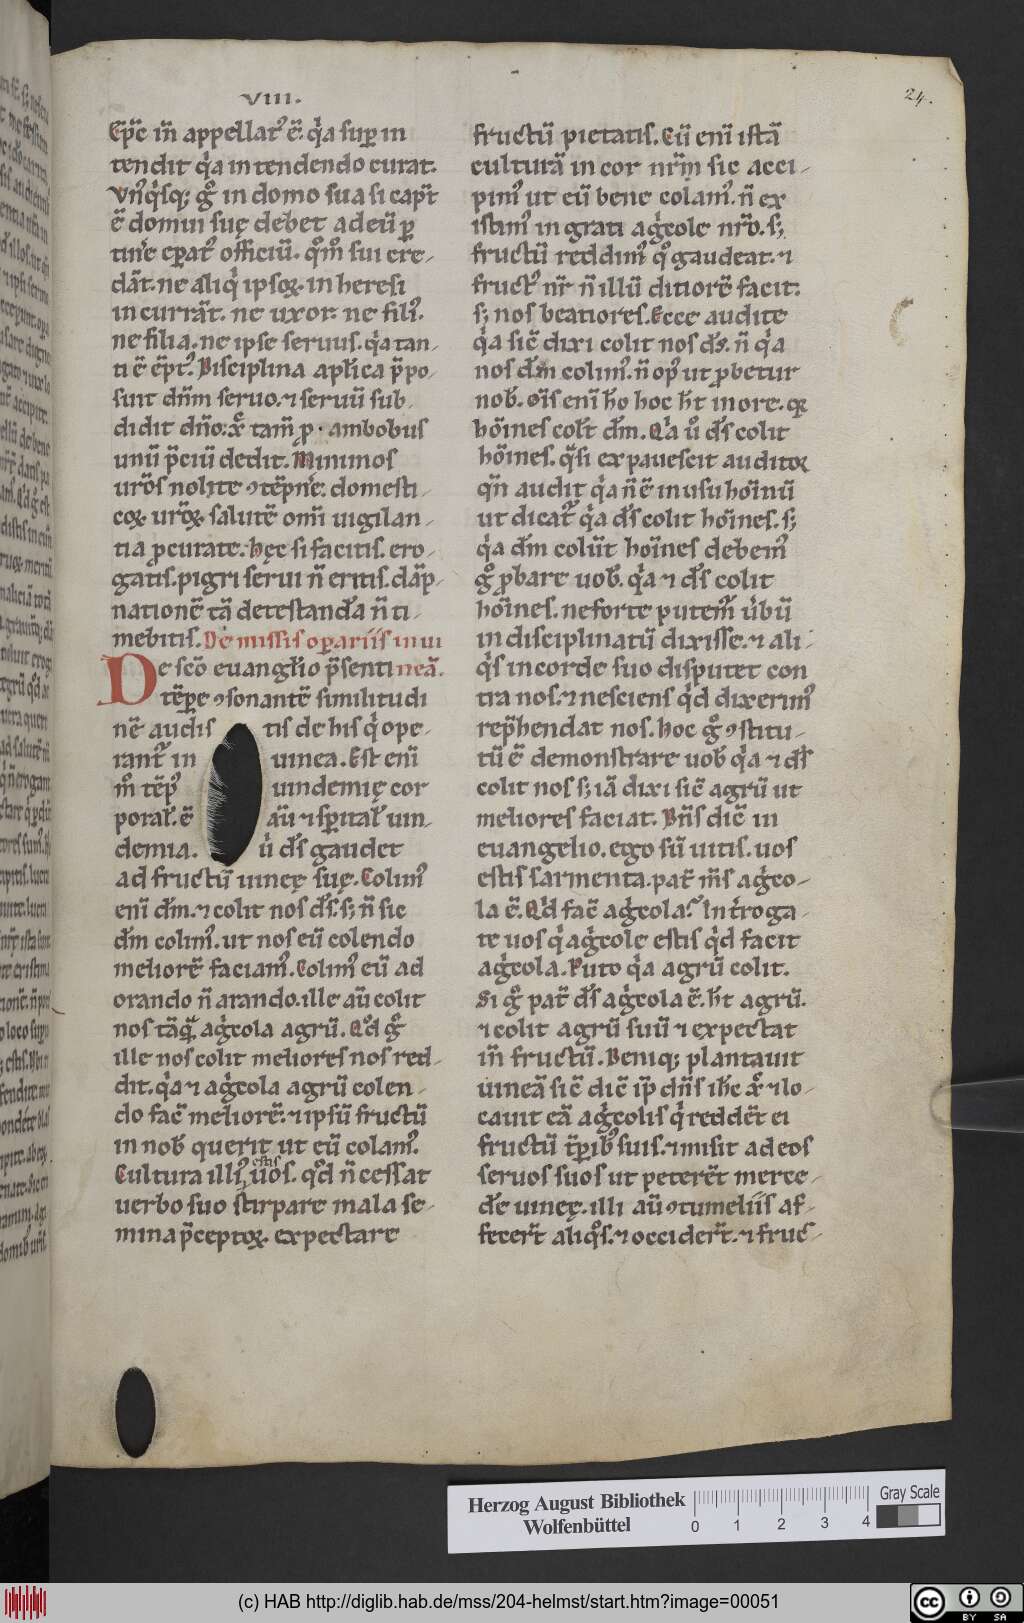 VIII.
24.
Epc̄ in̄ appellat᷒ ē. q̇a suꝑ in
tendit q̇a in tendendo curat.
Vn᷒q̇sq; g̊ in domo sua si cap̄t
ē domui sue debet ad eū ꝑ
tin̄e ep̄at᷒ officiū. q̊m̊ sui cre-
dāt. ne aliq̇ ipsoꝝ in heresi
in currāt. ne uxor. ne fili᷒.
ne filia. ne ipse seruus. q̇a tan-
ti ē ēpt᷒. Disciplina apl̄ica p̄po-
suit dn̄m seruo. ⁊ seruū sub-
didit dn̄o. xp̄c tam̄ ꝓ ambobus
unū p̄ciū dedit. Minimos
urōs nolite ꝯtēpn̄e. domesti-
coꝝ urōꝝ salutē om̄i uigilan-
tia ꝓcurate. hec si facitis. ero-
gatis. pigri serui n̄ eritis. dāp-
nationē tā detestandā n̄ ti-
mebitis. De missis oꝑariis in ui
De sc̄o euangl̄io p̄senti neā.
tēꝑe ꝯsonantē similitudi
nē audistis de his q̇ ope-
rant᷒ in uinea. Est eni̅
m̊ tēp᷒ uindemie cor
poral̄. ē aū ⁊ sp̄ital̄ uin-
demia. u̇ ds̄ gaudet
ad fructū uinee sue. Colim᷒
eni̅ dm̄. ⁊ colit nos ds̄. s; n̄ sic
dm̄ colim᷒. ut nos eū colendo
meliorē faciam᷒. Colim᷒ eū ad
orando n̄ arando. ille aū colit
nos tāq̄ ag̊cola agrū. Qd̊ g̊
ille nos colit meliores nos red-
dit. q̇a ⁊ ag̊cola agrū colen-
do fac̄ meliorē. ⁊ ipsū fructū
in nob̄ querit ut eū colam᷒.
Cultura illi᷒ ē ius uos. qd̊ n̄ cessat
uerbo suo stirpare mala se-
mina p̄ceptoꝝ. expectare
fructū pietatis. Cū eni̅ istā
culturā in cor nr̄m sic acci-
pim᷒ ut eū bene colam᷒. n̄ ex
istim᷒ in grati ag̊cole nr̄o. s;
fructū reddim᷒ q̊ gaudeat. ⁊
fruct᷒ nr̄ n̄ illū ditiorē facit.
s; nos beatiores. Ecce audite
q̇a sic̄ dixi colit nos ds̄. n̄ q̇a
nos dm̄ colim᷒. n̄ op᷒ ut ꝓbetur
nob̄. oīs eni̅ ho hoc h̄t in ore. qꝛ
hoīnes col̄t dm̄. Q̇a u̇ ds̄ colit
hoīnes. q̇si expauescit auditoꝛ
qn̄ audit q̇a n̄ ē in usu hoīnū
ut dicat᷒ q̇a ds̄ colit hoīnes. s;
q̇a dm̄ colūt hoīnes debem᷒
g̊ ꝓbare uob̄. q̇a ⁊ ds̄ colit
hoīnes. ne forte putem᷒ u̇bū
in disciplinatū dixisse. ⁊ ali-
q̇s in corde suo disputet con
tra nos. ⁊ nesciens qd̊ dixerim᷒
rep̄hendat nos. hoc g̊ ꝯstitu-
tū ē demonstrare uob̄ q̇a ⁊ ds̄
colit nos s; iā dixi sic̄ agrū ut
meliores faciat. Dn̄s dic̄ in
euangelio. ego sū uitis. uos
estis sarmenta. pat̄ m̄s ag̊co-
la ē. Qd̊ fac̄ ag̊cola᷒. Int̊roga-
te uos q̇ ag̊cole estis qd̊ facit
ag̊cola. Puto q̇a agrū colit.
Si g̊ pat̄ ds̄ ag̊cola ē. h̄t agrū.
⁊ colit agrū suū ⁊ expectat
in̄ fructū. Deniq; plantauit
uineā sic̄ dic̄ ip̄ dn̄s ih̄c xp̄c ⁊ lo-
cauit eā ag̊colis q̇ reddēt ei
fructū t̄ꝑib᷒ suis. ⁊ misit ad eos
seruos suos ut peterēt merce-
dē uinee. illi aū ꝯtumeliis af-
fecer̄t aliq̊s. ⁊ occider̄t. ⁊ fruc-
Herzog August Bibliothek
Wolfenbüttel
0 1 2 3 4
Gray Scale
(c) HAB http://diglib.hab.de/mss/204-helmst/start.htm?image=00051
cc BY SA